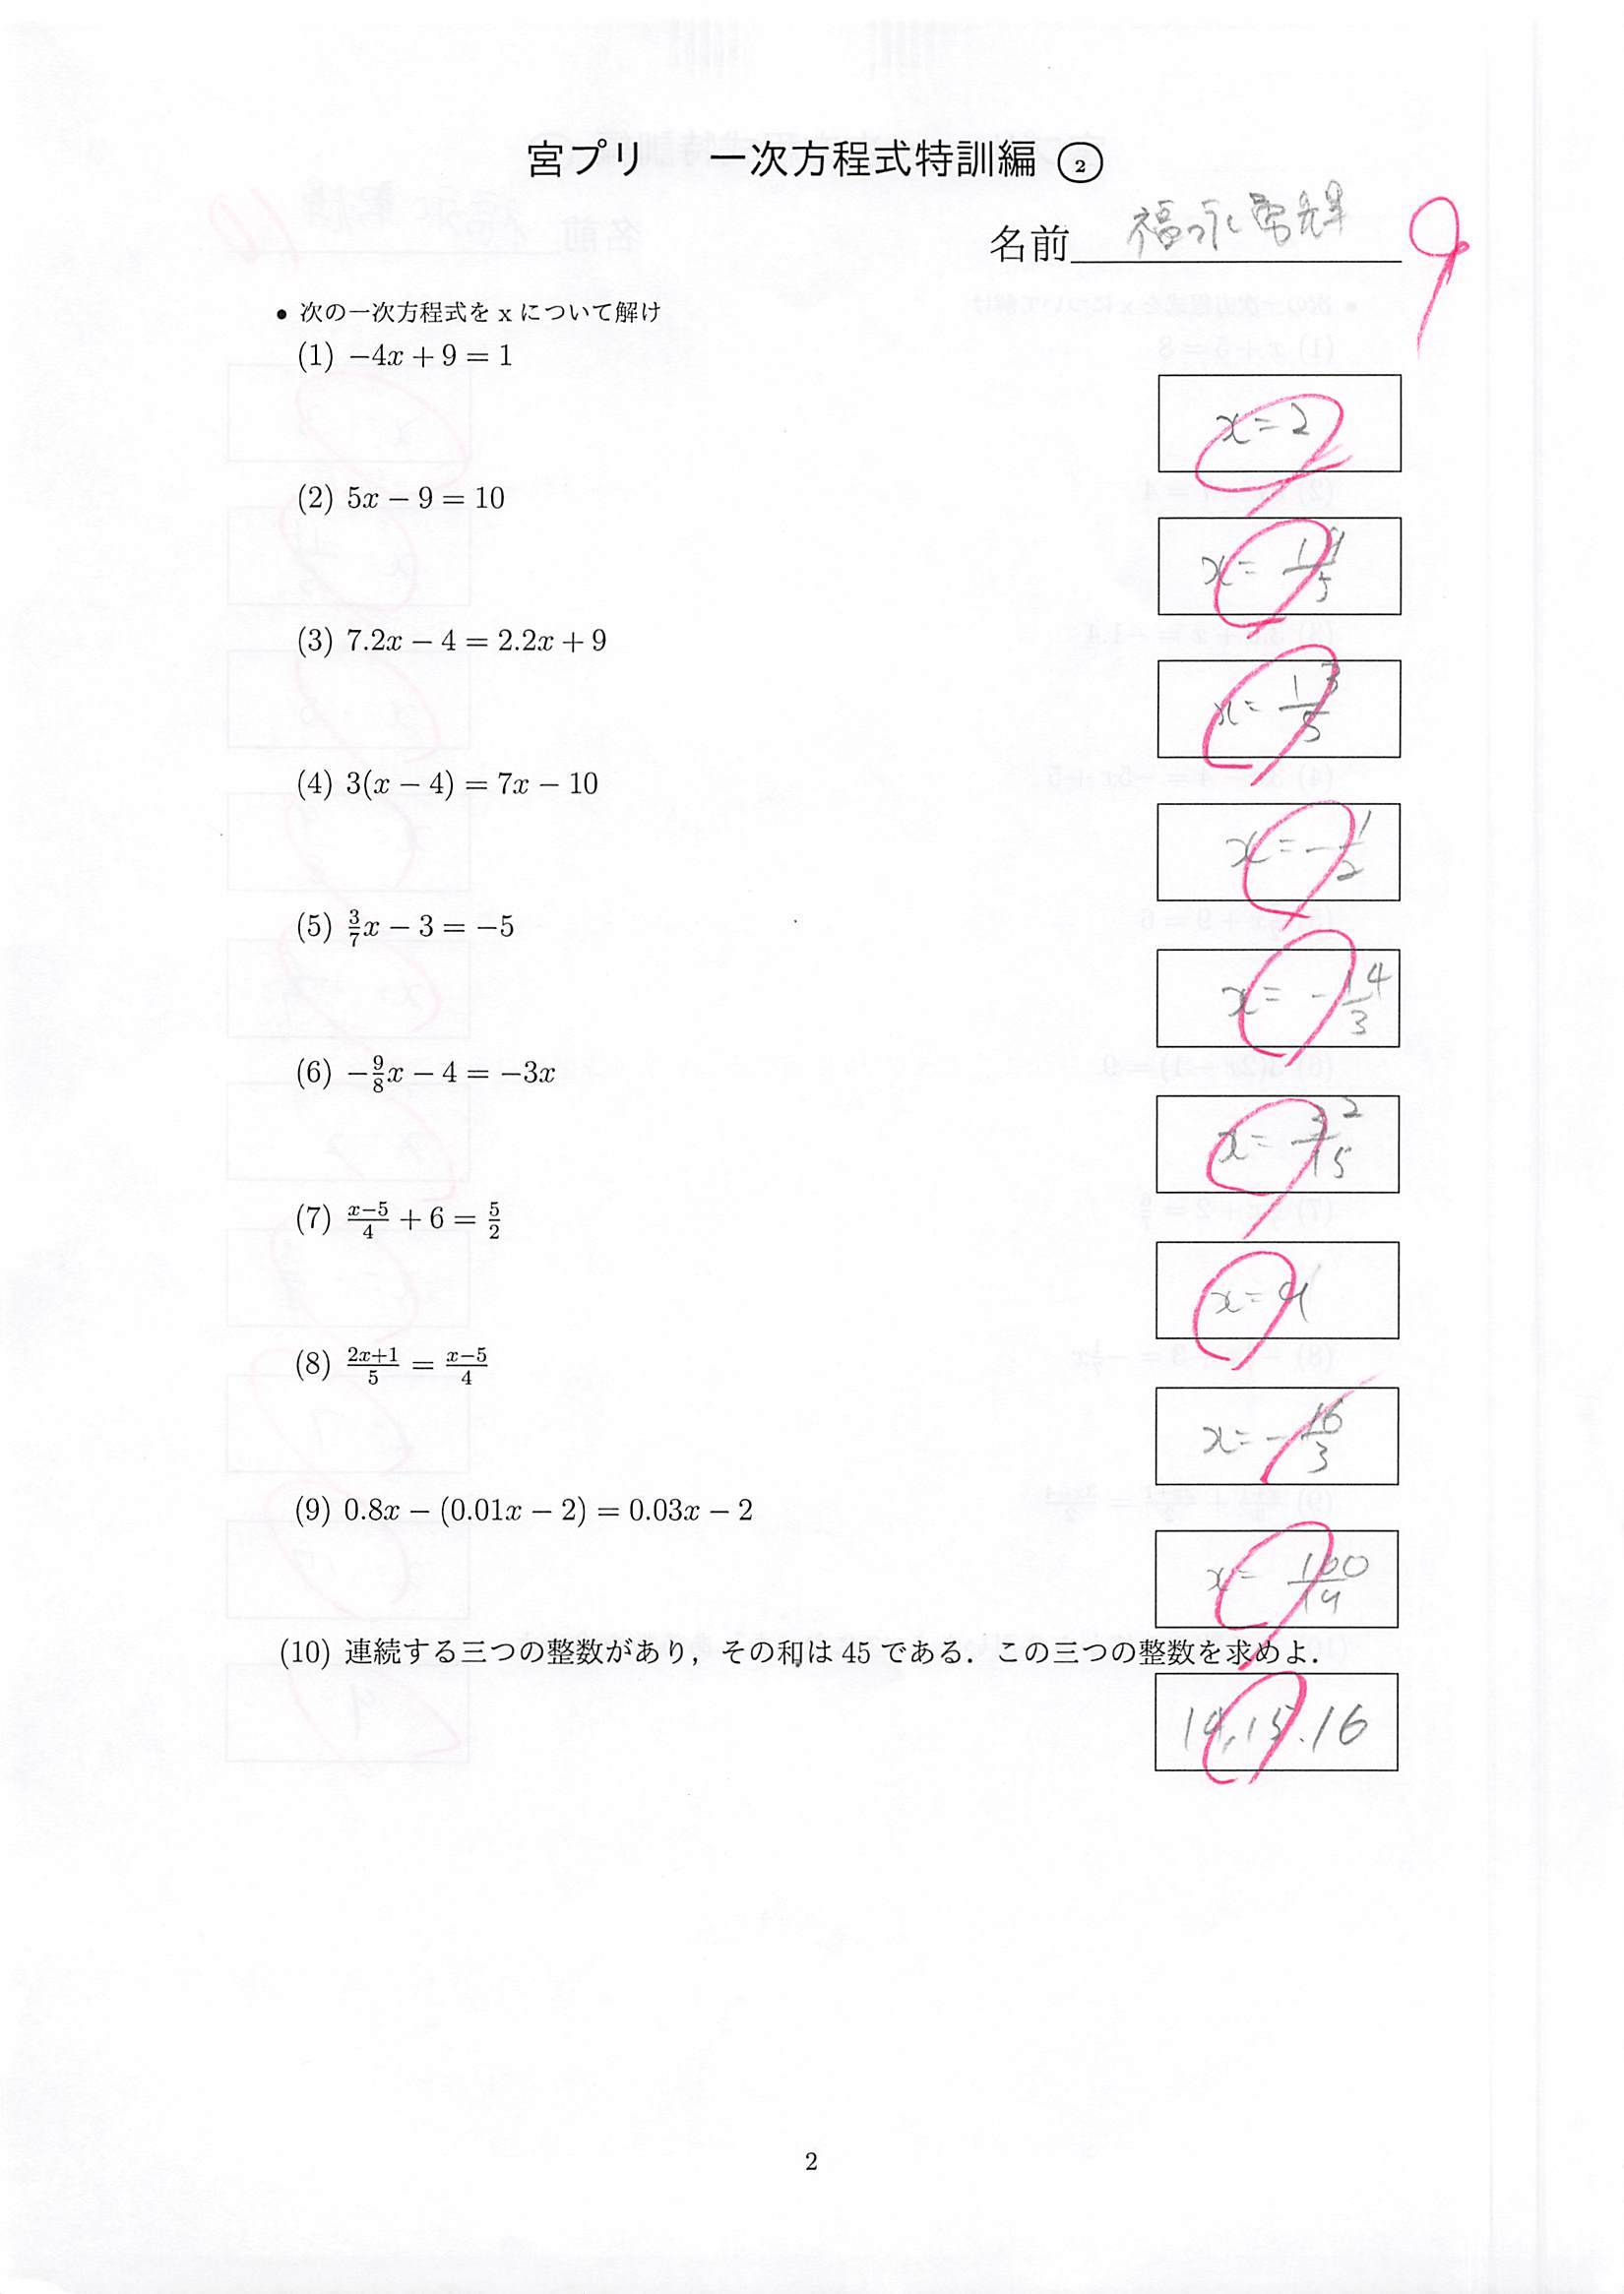 宮プリ 一次方程式特訓編 ②
名前 福永 9
• 次の一次方程式を x について解け
(1) −4x + 9 = 1
x = 2
(2) 5x − 9 = 10
x = 19/5
(3) 7.2x − 4 = 2.2x + 9
x = 13/5
(4) 3(x − 4) = 7x − 10
x = −1/2
(5) 3/7x − 3 = −5
x = −14/3
(6) −9/8x − 4 = −3x
x = 32/15
(7) x−5/4 + 6 = 5/2
x = 9
(8) 2x+1/5 = x−5/4
x = −16/3
(9) 0.8x − (0.01x − 2) = 0.03x − 2
x = 100/19
(10) 連続する三つの整数があり，その和は 45 である．この三つの整数を求めよ．
14,15.16
2